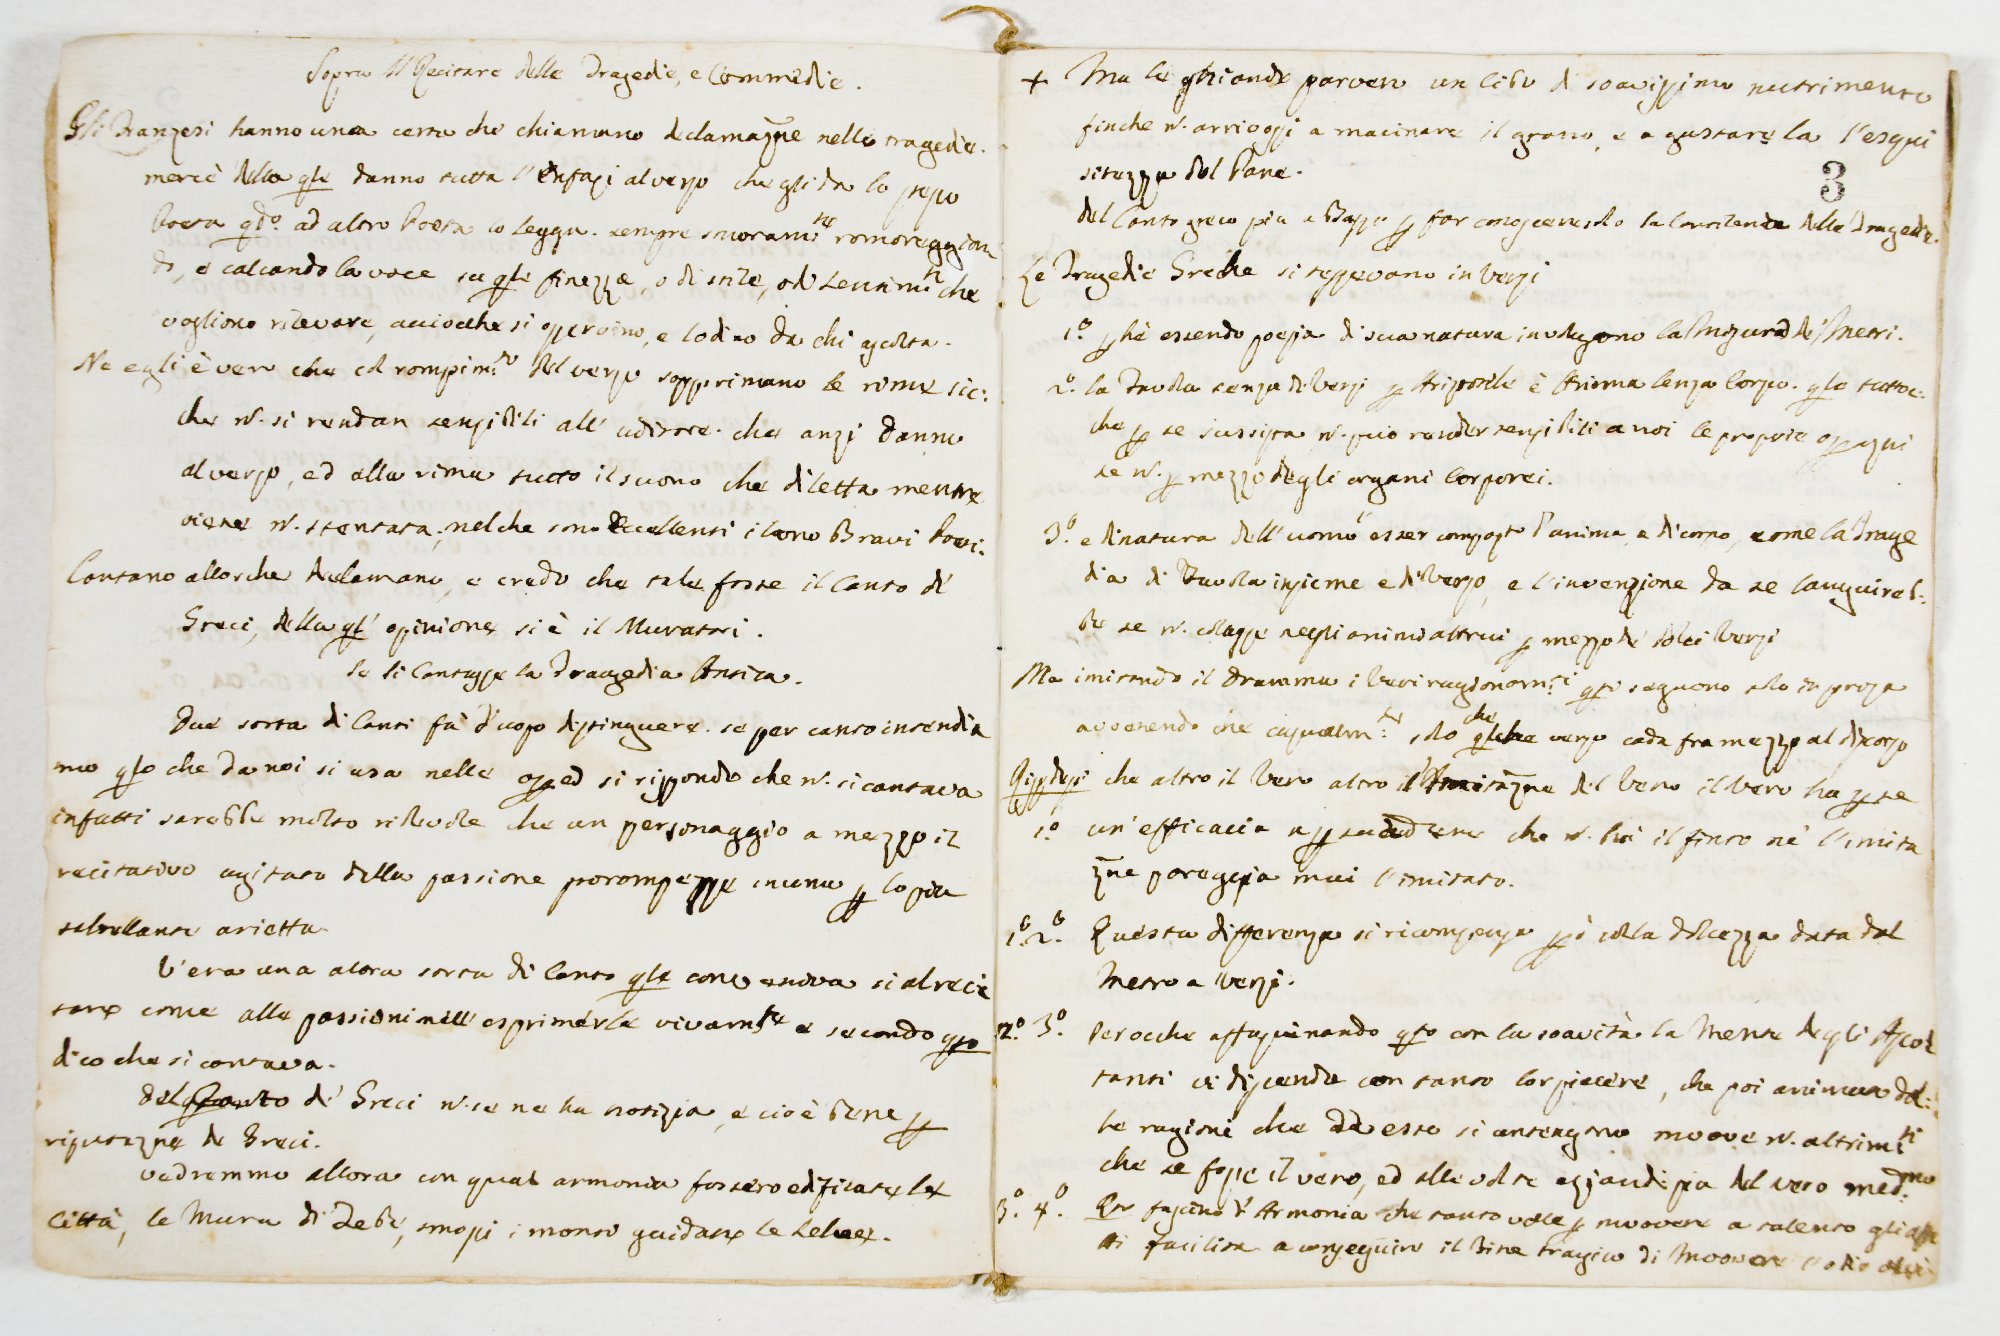 Sopra il Recitare delle Tragedie, e Commedie.
Gli Franzesi hanno una certa che chiamano declamazne nelle tragedie.
mercè della qle danno tutta l'enfasi al verso che gli da lo stesso
Poeta qdo ad altro Poeta lo legge. sempre smoramte romoreggian
do, e calcando la voce su qlle finezze, o di stile, o di sentimti che
vogliono rilevare, acciocche si osservino, e lodino da chi ascolta.
Ne egli è vero che col rompimto del verso sopprimano le rime sic:
che n. si rendan sensibili all' uditore. che anzi danno
al verso, ed alla rima tutto il suono che diletta mentre
viene n. stentata, nel che sono eccellenti i loro Bravi Poeti.
Cantano allorche declamano, e credo che tale fosse il Canto di
Greci, della ql' opinione si è il Muratori.
Se si Cantasse la Tragedia Antica.
Due sorta di Canti fà d'uopo distinguere. se per canto intendia
mo qlo che da noi si usa nelle opped si risponde che n. si cantava
infatti sarebbe molto ridevole che un personaggio a mezzo il
recitativo agitato dalla passione prorompesse in una p lo più
saltellante arietta.
V'era una altra sorta di Canto qle conveniva si al reci
tare come alle passioni nell' esprimerle vivamte e secondo qsto
dico che si cantava.
Del Canto di' Greci n. se ne ha notizia, e ciò è bene p
riputazne de Greci.
vedremmo allora con qual armonia fossero edificate le
Città, le Mura di Tebe, smossi i monti guidate le Selve.
+ Ma le ghiande parvero un Cibo di soavissimo nutrimento
finche n. arrivossi a macinare il grano, e a gustare la l'esqui
sitezza del Pane.
3
del Canto greco più a Basso p far conoscere la della Tragedia.
Le Tragedie Greche si tessevano in versi
1.o phè essendo poesia di sua natura involgono la Misura de' Metri.
2.o la Favola senza de Versi p Aristotile è Anima senza Corpo. qle tutto:
che p se sussista n. può render sensibili a noi le proprie opazni
se n. p mezzo degli organi Corporei.
3.o e di natura dell' uomo esser composto d'anima, e di corpo, come la Trage
dia di Favola insieme e di Verso, e l'invenzione da se languireb:
be se n. colasse negli animi altrui p mezzo de' dolci Versi
Ma imitando il Dramma i Veri ragionamti qsti seguono solo in prosa
avvenendo che casualmte, solo che qlche verso cada framezzo al discorso
Rispdesi che altro il Vero altro l'Imitazne del Vero il Vero ha p se
1.o un' efficacia a psuadere che n. hà il finto nè l'imita
zne pareggia mai l'imitato.
1.o 2.o Questa differenza si ricompensa pò colla dolcezza data dal
Metro a Versi.
2.o 3.o Perocche affascinando qsto con la soavità la Mente degli Ascol
tanti vi discende con tanto lor piacere, che poi animato dal:
le ragioni che ad esso si antengono muove n. altrimti
che se fosse il vero, ed alle volte eziandio più del vero medmo
3.o 4.o Qsto fascino d'Armonia che tanto vale p muovere a talento gli affe
tti facilita a conseguire il Fine tragico di Muovere